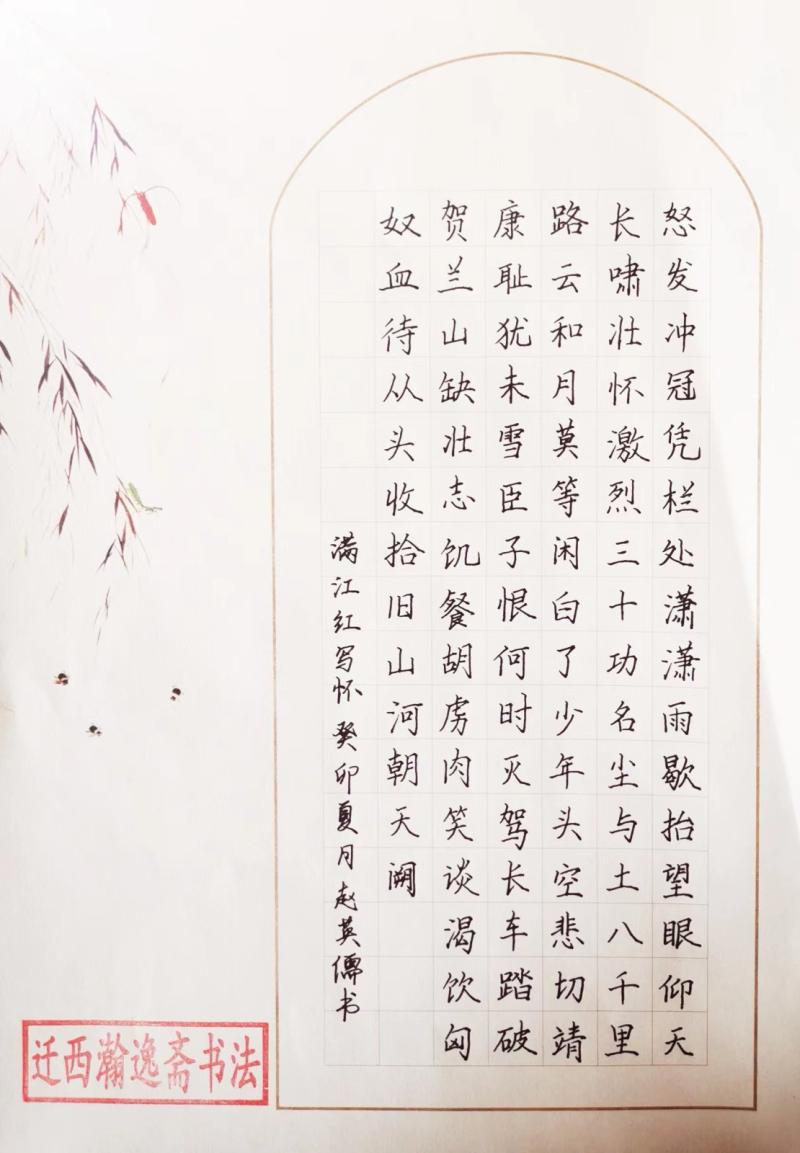 怒发冲冠凭栏处潇潇雨歇抬望眼仰天
长啸壮怀激烈三十功名尘与土八千里
路云和月莫等闲白了少年头空悲切靖
康耻犹未雪臣子恨何时灭驾长车踏破
贺兰山缺壮志饥餐胡虏肉笑谈渴饮匈
奴血待从头收拾旧山河朝天阙
满江红写怀 癸卯夏月赵英儒书
迁西瀚逸斋书法